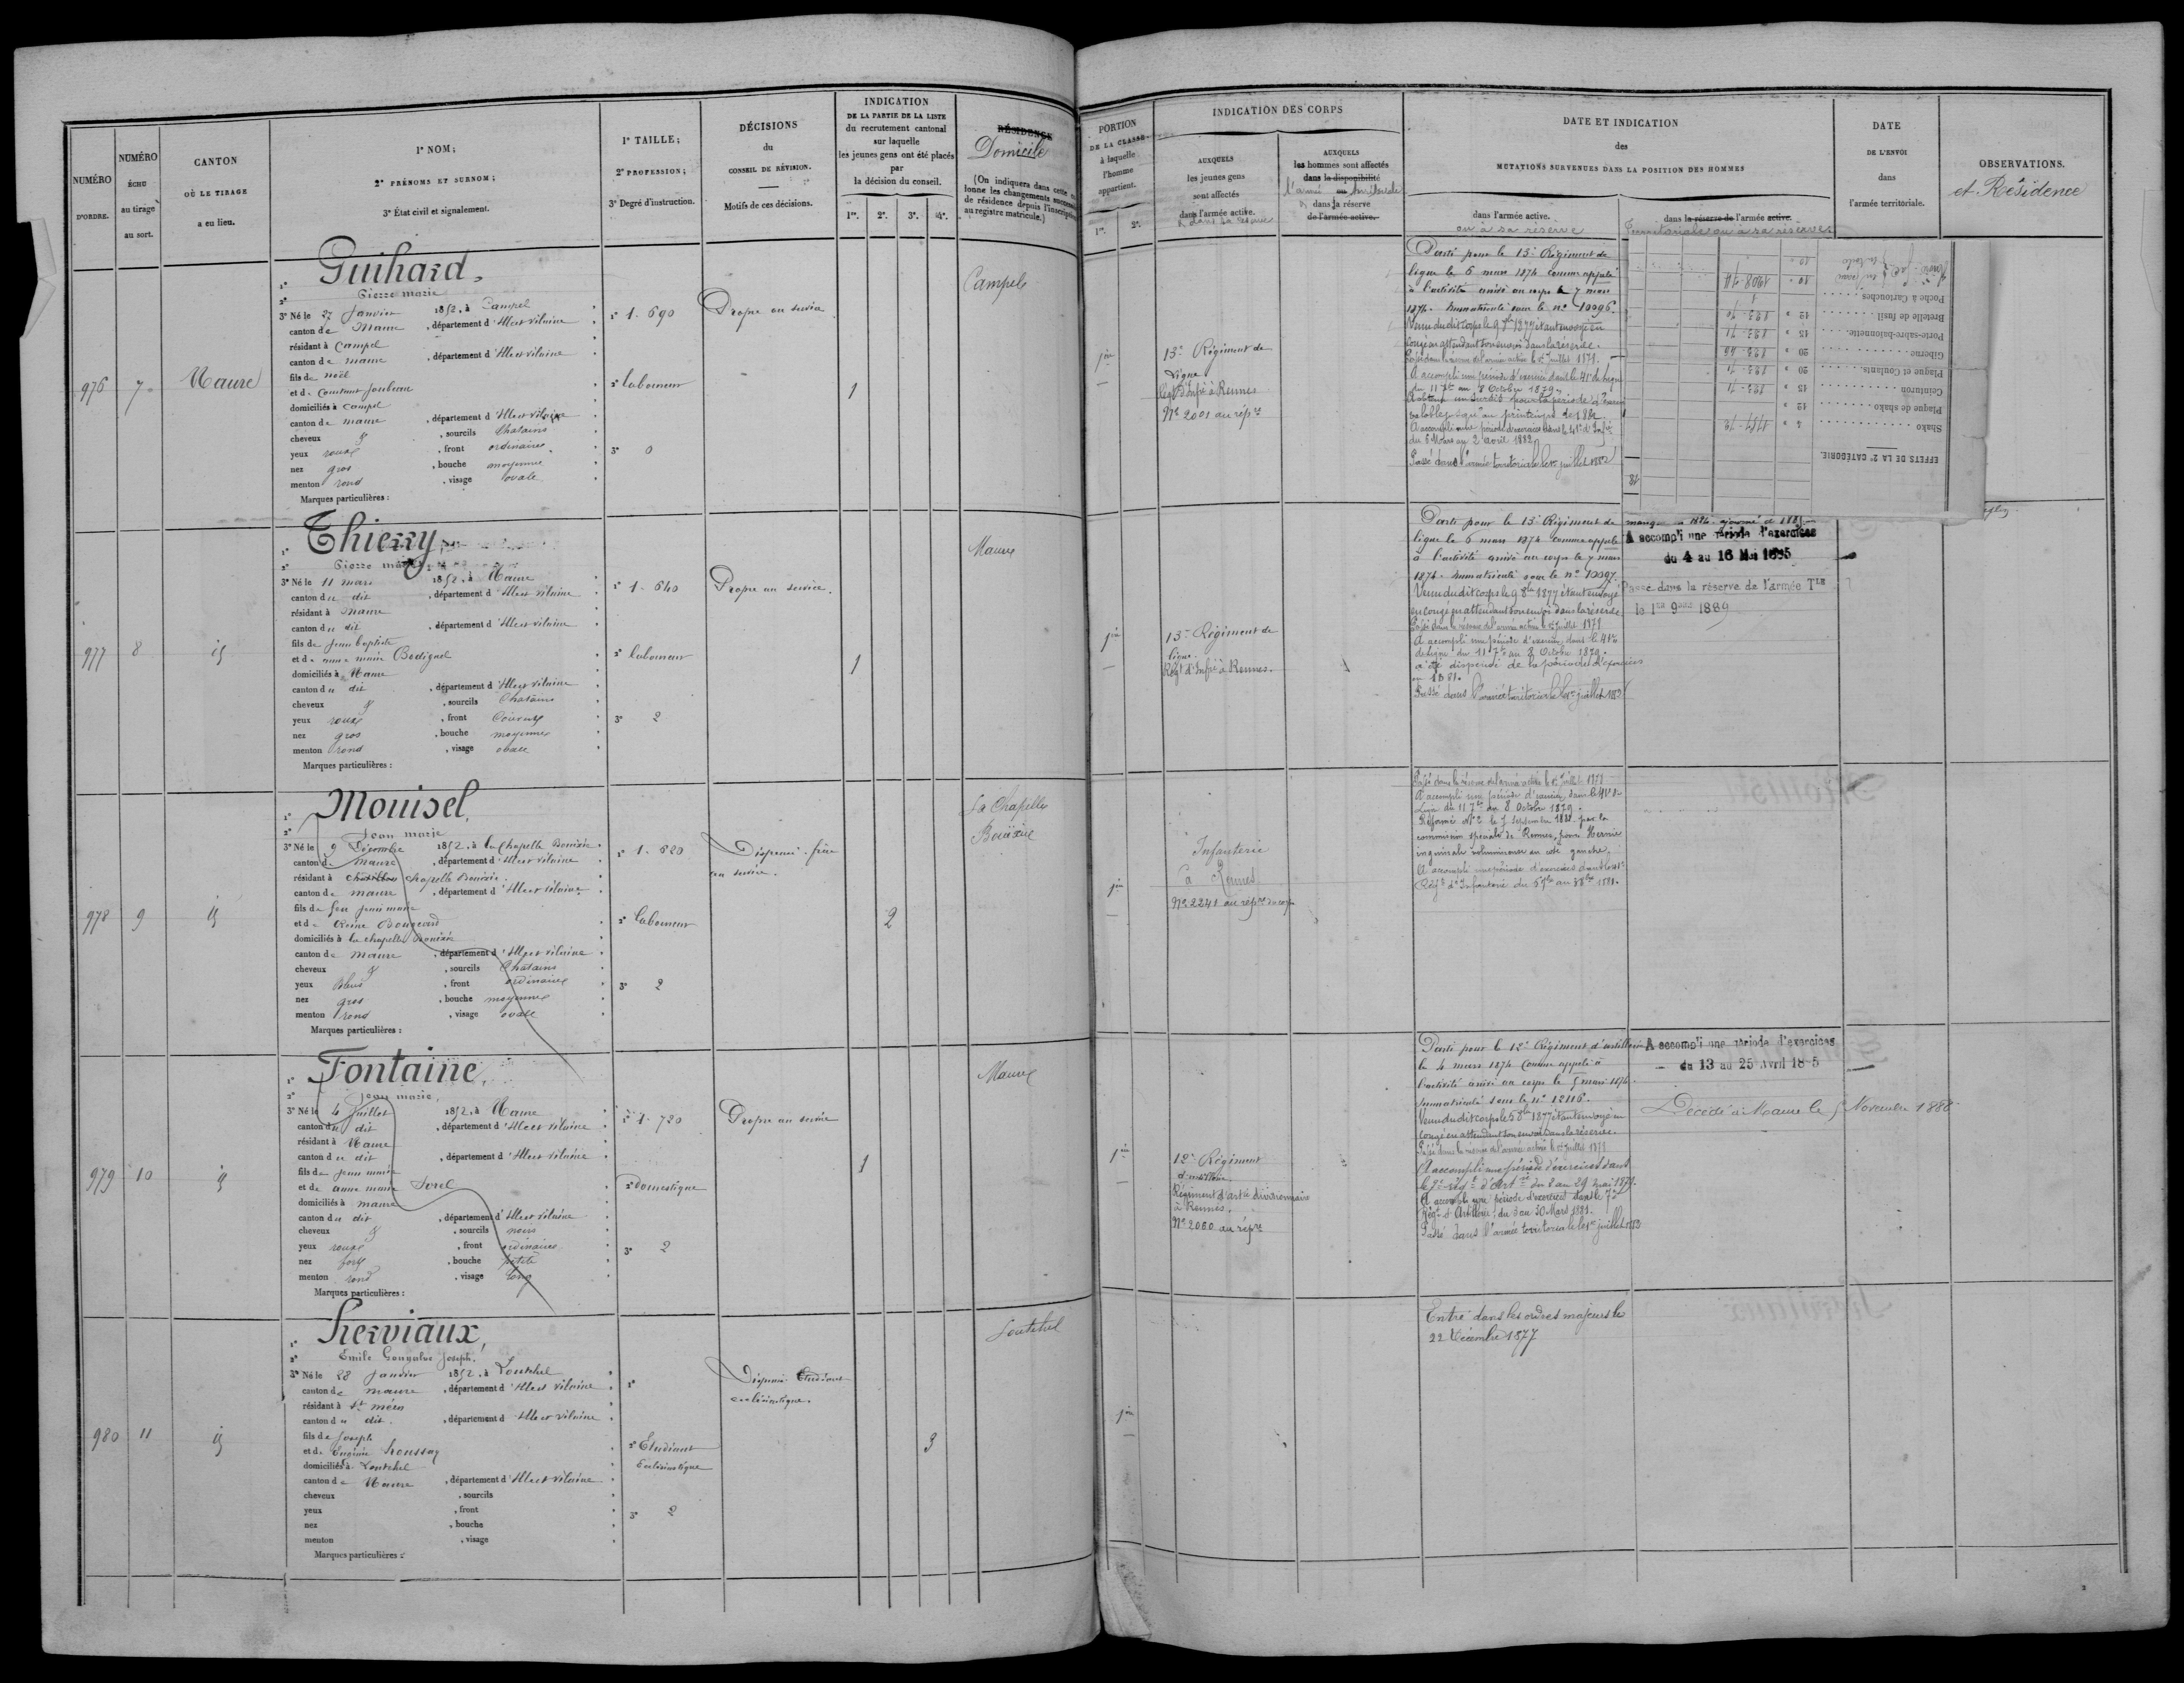 NUMÉRO
D'ORDRE.
NUMÉRO
ÉCHU
au tirage
au sort.
CANTON
OÙ LE TIRAGE
a eu lieu.
1° NOM;
2° PRÉNOMS ET SURNOM;
3° État civil et signalement.
1° TAILLE;
2° PROFESSION;
3° Degré d'instruction.
DÉCISIONS
du
CONSEIL DE RÉVISION.
Motifs de ces décisions.
INDICATION
DE LA PARTIE DE LA LISTE
du recrutement cantonal
sur laquelle
les jeunes gens ont été placés
par
la décision du conseil.
1re. 2e. 3e. 4e.
RÉSIDENCE
Domicile
(On indiquera dans cette
lonne les changements
de résidence depuis l'inscription
au registre matricule.)
976
7
Maure
1° Guihard
2° Pierre marie
3° Né le 27 Janvier 1852, à Campel
canton de Maure, département d'Ille et vilaine
résidant à Campel
canton de maure, département d'Ille et vilaine
fils de noël
et de
domiciliés à Campel
canton de maure, département d'Ille et vilaine
cheveux & , sourcils Chatains
yeux roux, front ordinaire
nez gros, bouche moyenne
menton rond, visage ovale
Marques particulières :
1° 1.690
2° laboureur
3° 0
Propre au service
1
Campel
977
8
id
1° Thierry
2° Pierre marie
3° Né le 11 mars 1852, à Maure
canton du dit, département d'Ille et vilaine
résidant à Maure
canton du dit, département d'Ille et vilaine
fils de Jean baptiste
et de anne marie
domiciliés à Maure
canton du dit, département d'Ille et vilaine
cheveux & , sourcils Chatains
yeux roux, front couvert
nez gros, bouche moyenne
menton rond, visage ovale
Marques particulières :
1° 1.640
2° laboureur
3° 2
Propre au service.
1
Maure
978
9
id
1° Mouisel
2° Jean marie
3° Né le 9 Décembre 1852, à la Chapelle Bouëxic
canton de maure, département d'Ille et vilaine
résidant à Chapelle Bouëxic
canton de maure, département d'Ille et vilaine
fils de feu Jean marie
et de
domiciliés à la chapelle Bouëxic
canton de maure, département d'Ille et vilaine
cheveux & , sourcils Chatains
yeux Bleus, front ordinaire
nez gros, bouche moyenne
menton rond, visage ovale
Marques particulières :
1° 1.620
2° laboureur
3° 2
Dispensé. frère
au service.
2
La Chapelle
Bouëxic
979
10
id
1° Fontaine
2° Jean marie
3° Né le 4 Juillet 1852, à Maure
canton du dit, département d'Ille et vilaine
résidant à Maure
canton du dit, département d'Ille et vilaine
fils de Jean marie
et de anne marie Sorel
domiciliés à maure
canton du dit, département d'Ille et vilaine
cheveux & , sourcils noirs
yeux roux, front ordinaire
nez fort, bouche petite
menton rond, visage long
Marques particulières :
1° 1.720
2° domestique
3° 2
Propre au service
1
Maure
980
11
id
1° Herviaux
2° Emile Gonzalve Joseph
3° Né le 28 Janvier 1852, à Loutehel
canton de maure, département d'Ille et vilaine
résidant à St méen
canton du dit, département d'Ille et vilaine
fils de Joseph
et de Houssay
domiciliés à Loutehel
canton de Maure, département d'Ille et vilaine
cheveux , sourcils
yeux , front
nez , bouche
menton , visage
Marques particulières :
1°
2° Etudiant
Ecclésiastique
3° 2
Dispensé. Etudiant
ecclésiastique.
3
Loutehel
PORTION
DE LA CLASSE
à laquelle
l'homme
appartient.
1re. 2e.
INDICATION DES CORPS
AUXQUELS
les jeunes gens
sont affectés
dans l'armée active.
& dans sa réserve
AUXQUELS
les hommes sont affectés
dans la disponibilité
l'armée territoriale
& dans la réserve
de l'armée active.
DATE ET INDICATION
des
MUTATIONS SURVENUES DANS LA POSITION DES HOMMES
dans l'armée active.
ou à sa réserve
dans la réserve de l'armée active.
Territoriale ou à sa réserve
DATE
DE L'ENVOI
dans
l'armée territoriale.
OBSERVATIONS.
et Résidence
1re
13e Régiment de
ligne.
Regt d'Infie à Rennes
No 2001 au répre
Parti pour le 13e Régiment de
ligne le 6 mars 1874 comme appelé
à l'activité arrivé au corps le 7 mars
1874. Immatriculé sous le no 10096.
Venu du dit corps le 9 8bre 1877 étant envoyé en
congé en attendant son envoi dans la réserve.
Passé dans la réserve de l'armée active le 1er Juillet 1879.
A accompli une période d'exercices dans le 41e de ligne
du 11 7bre au 8 Octobre 1879.
A obtenu un sursis pour la période
au printemps de 1882.
A accompli une période d'exercices dans le 41e d'Infie
du 6 Mars au 2 avril 1882
Passé dans l'armée territoriale le 1er juillet 1882
EFFETS DE LA 2e CATÉGORIE.
Shako
Plaque de shako
Ceinturon
Plaque et Coulants
Giberne
Porte-sabre-baïonnette
Bretelle de fusil
Poche à Cartouches
1re
13e Régiment de
ligne.
Regt d'Infie à Rennes.
Parti pour le 13e Régiment de
ligne le 6 mars 1874 comme appelé
à l'activité arrivé au corps le 7 mars
1874. Immatriculé sous le no 10097.
Venu du dit corps le 9 8bre 1877 étant envoyé
en congé en attendant son envoi dans la réserve
Passé dans la réserve de l'armée active le 1er Juillet 1879
A accompli une période d'exercices dans le 41e
de ligne du 11 7bre au 8 Octobre 1879.
a été dispensé de la période d'exercices
en 1881.
Passé dans l'armée territoriale le 1er juillet 1882
A accompli une période d'exercices
du 4 au 16 Mai 1885
Passé dans la réserve de l'armée Tle
le 1er 9bre 1889
1re
Infanterie
à Rennes
No 2241 au répre du corps
Passé dans la réserve de l'armée active le 1er Juillet 1879
A accompli une période d'exercices dans le 41e de
Ligne du 11 7bre au 8 Octobre 1879.
Réformé No 2 le 7 septembre 1881 par la
commission spéciale de Rennes, pour Hernie
inguinale volumineuse au coté gauche.
A accompli une période d'exercices dans le 41e
Regt d'Infanterie du
1re
12e Régiment
d'artillerie.
Régiment d'artie divisionnaire
à Rennes.
No 2060 au répre
Parti pour le 12e Régiment d'artillerie
le 4 mars 1874 comme appelé à
l'activité arrivé au corps le 5 mars 1874.
Immatriculé sous le no 12116.
Venu du dit corps le 8bre 1877 étant envoyé en
congé en attendant son envoi dans la réserve.
Passé dans la réserve de l'armée active le 1er Juillet 1879
A accompli une période d'exercices dans
le 7e regt d'Artie du 8 au 29 mai 1879.
A accompli une période d'exercices dans le 7e
Régt d'Artillerie, du 3 au 30 Mars 1881.
Passé dans l'armée territoriale le 1er juillet 1882
A accompli une période d'exercices
du 13 au 25 avril 18 5
Décédé à Maure le 5 Novembre 1888
1re
Entré dans les ordres majeurs le
22 Décembre 1877